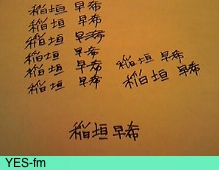 稲垣 早希
稲垣 早希
稲垣 早希
稲垣 早希
稲垣 早希
稲垣 早希
稲垣 早希
稲垣 早希
稲垣 早希
YES-fm